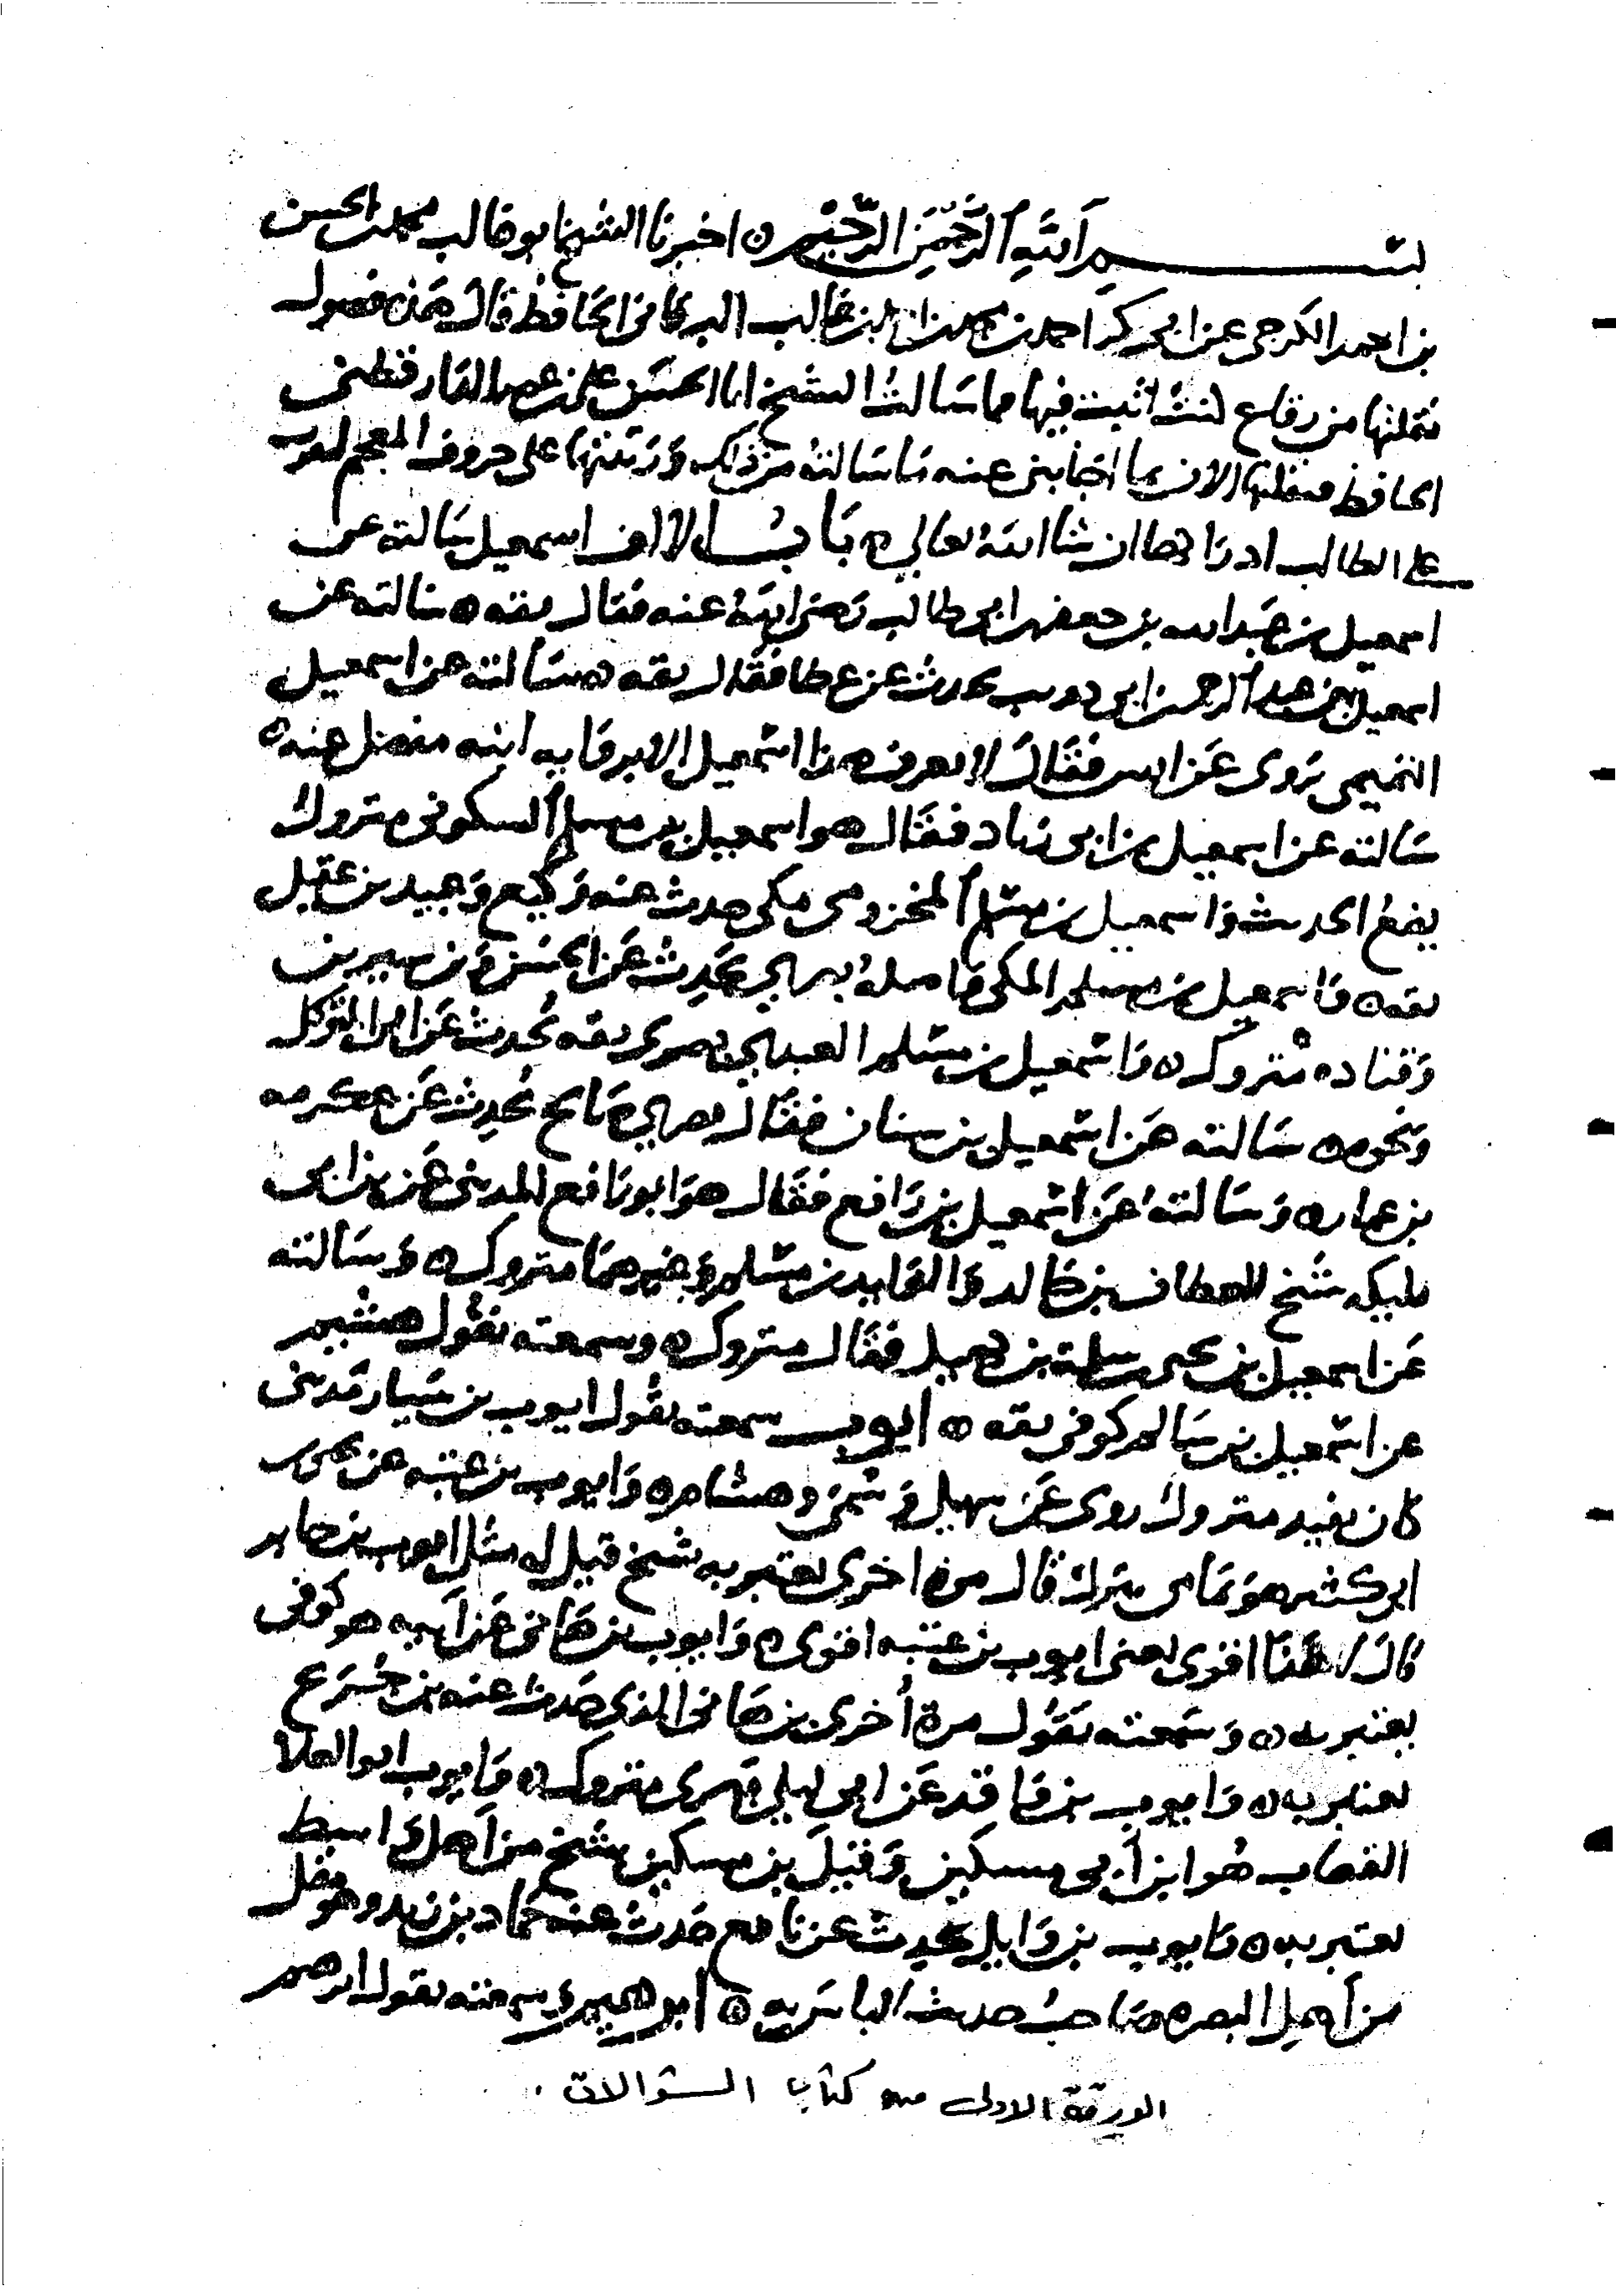 بسم الله الرحمن الرحيم ه اخبرنا الشيخ ابو غالب محمد بن الحسن
بن احمد الكرجي عن ابي بكر احمد بن محمد بن احمد بن غالب البرقاني الحافظ قال هذه فصول
نقلتها من رقاع كنت اثبت فيها مما سالت الشيخ ابا الحسن علي بن عمر الدارقطني
الحافظ فنقلتها الان بما اجابني عنه ما سالته من ذلك ورتبتها على حروف المعجم لتقرب
على الطالب ادراكها ان شا الله تعالى ه باب الالف اسمعيل سالته عن
اسمعيل بن عبد الله بن جعفر بن ابي طالب رضي الله عنه فقال ثقه ه سالته عن
اسمعيل بن عبد الرحمن بن ابي ذويب يحدث عن عطا فقال ثقه ه سالته عن اسمعيل
التميمي يروي عن انس فقال لا يعرف هذا اسمعيل الا برواية ابنه مفضل عنه ه
سالته عن اسمعيل بن ابي زياد فقال هو اسمعيل بن مسلم السكوني متروك
يضع الحديث واسمعيل بن مسلم المخزومي مكي حدث عنه وكيع وعبيد بن عقيل
ثقه ه واسمعيل بن مسلم المكي واصله بصري يحدث عن الحسن وبن سيرين
وقتاده متروك ه واسمعيل بن مسلم العبدي بصري ثقه يحدث عن ابي المتوكل
ونحوه ه سالته عن اسمعيل بن سنان فقال بصري صالح يحدث عن عكرمه
بن عمار ه وسالته عن اسمعيل بن رافع فقال هو ابو رافع المديني عن بن ابي
مليكه شيخ للعطاف بن خالد والوليد بن مسلم وغيرهما متروك ه وسالته
عن اسمعيل بن يحيى بن سلمة بن كهيل فقال متروك ه وسمعته يقول هشيم
عن اسمعيل بن سالم كوفي ثقه ه ايوب سمعته يقول ايوب بن سيار مدني
كان بفيد متروك روى عن سهيل وسمي وهشام ه وايوب بن عتبه عن يحيى بن
ابي كثير هو يمامي يترك قال مرة اخرى يعتبر به شيخ قيل له مثل ايوب بن جابر
قال لا هذا اقوى يعني ايوب بن عتبه اقوى ه وايوب بن هاني عن ابيه هو كوفي
يعتبر به ه وسمعته يقول مرة اخرى بن هاني الذي حدث عنه بن جريج
يعتبر به ه وايوب بن واقد عن ابي ليلى بصري متروك ه وايوب ابو العلا
القصاب هو ابن ابي مسكين وقيل بن مسكين شيخ من اهل واسط
يعتبر به ه وايوب بن وايل يحدث عن نافع حدث عنه حماد بن زيد وهو مقل
من اهل البصره صاحب حديث الباسريه ه ابرهيم سمعته يقول ابرهيم
الورقة الاولى من كتاب السؤالات .